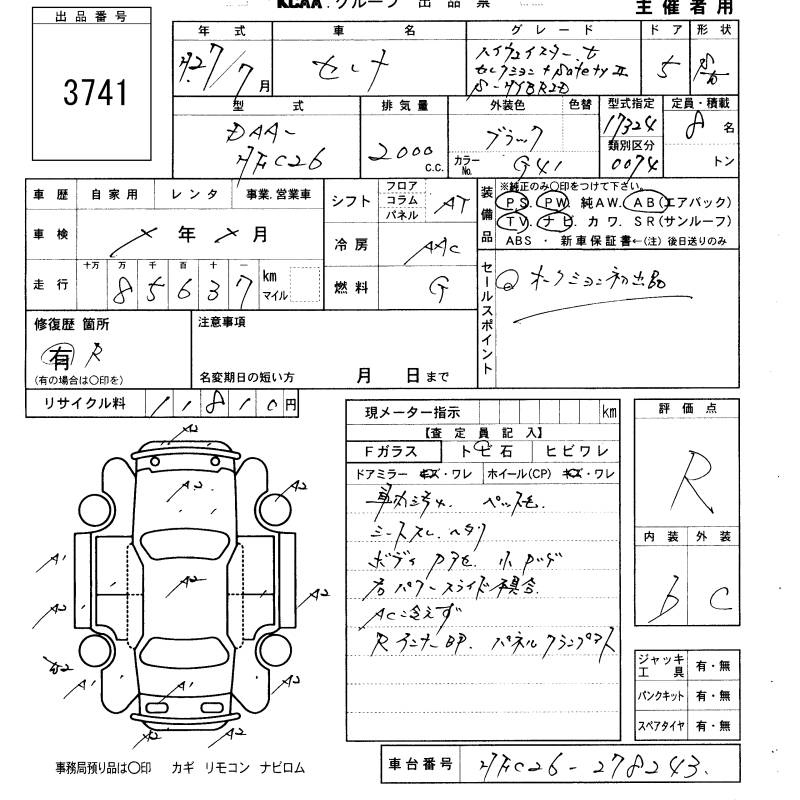 KCAA グループ 出品票
主催者用
出品番号
3741
年式 車名 グレード ドア 形状
H27/7月 セレナ ハイウェイスター セレクション+Safety II S-HYBRID 5
型式 排気量 外装色 色替 型式指定 定員・積載
DAA-HFC26 2000 c.c. ブラック 17324 8名
カラーNo. G41 類別区分 0074 トン
車歴 自家用 レンタ 事業.営業車
シフト フロア コラム パネル AT
装備品 ※純正のみ〇印をつけて下さい。
PS. PW. 純AW. AB(エアバック)
TV. ナビ. カワ. SR(サンルーフ)
ABS ・ 新車保証書←(注) 後日送りのみ
車検 年 月
冷房 AAC
走行 十万 万 千 百 十 一 km マイル
85637
燃料 G
セールスポイント オークション初出品
修復歴 箇所
有 R
(有の場合は〇印を)
注意事項
名変期日の短い方 月 日まで
リサイクル料 11810円
現メーター指示 km
【査定員記入】
Fガラス トビ石 ヒビワレ
ドアミラー キズ・ワレ ホイール(CP) キズ・ワレ
シートスレ.ヘタリ
ボディ
右パワースライド不具合.
AC冷えず
Rインナー パネル
評価点
R
内装 外装
b C
ジャッキ工具 有・無
パンクキット 有・無
スペアタイヤ 有・無
A2
A2
A2
A2
A1
A2
A2
A2
A2
A1
A1
A2
A2
A2
事務局預り品は〇印 カギ リモコン ナビロム
車台番号 HFC26-278243.